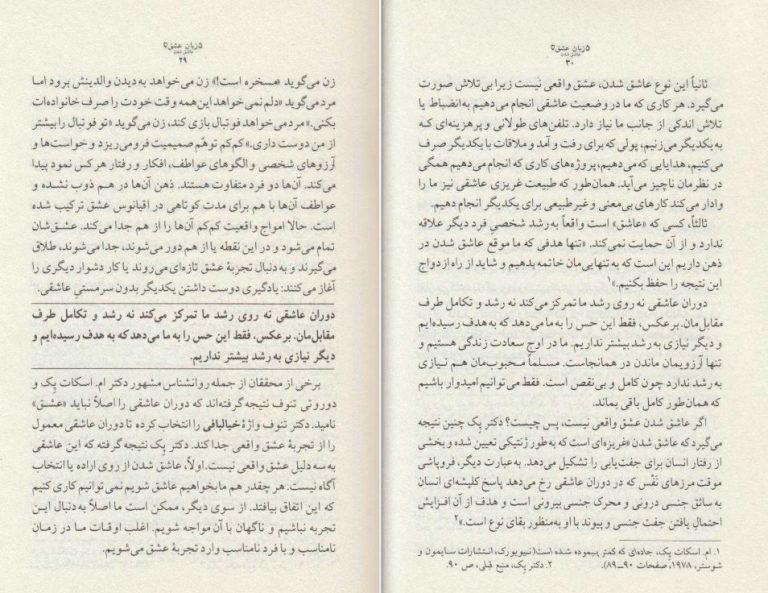 ۵ زبان عشق
عاشق شدن
۲۹
زن می‌گوید «مسخره است!» زن می‌خواهد به دیدن والدینش برود اما
مرد می‌گوید «دلم نمی‌خواهد این‌همه وقت خودت را صرف خانواده‌ات
بکنی.» مرد می‌خواهد فوتبال بازی کند، زن می‌گوید «تو فوتبال را بیشتر
از من دوست داری.» کم‌کم توهّم صمیمیت فرو می‌ریزد و خواست‌ها و
آرزوهای شخصی و الگوهای عواطف، افکار و رفتار هر کس نمود پیدا
می‌کند. آن‌ها دو فرد متفاوت هستند. ذهن آن‌ها در هم ذوب نشده و
عواطف آن‌ها با هم برای مدت کوتاهی در اقیانوس عشق ترکیب شده
است. حالا امواج واقعیت کم‌کم آن‌ها را از هم جدا می‌کند. عشق‌شان
تمام می‌شود و در این نقطه یا از هم دور می‌شوند، جدا می‌شوند، طلاق
می‌گیرند و به دنبال تجربهٔ عشق تازه‌ای می‌روند یا کار دشوار دیگری را
آغاز می‌کنند: یادگیری دوست داشتن یکدیگر بدون سرمستیِ عاشقی.
دوران عاشقی نه روی رشد ما تمرکز می‌کند نه رشد و تکامل طرف
مقابل‌مان. برعکس، فقط این حس را به ما می‌دهد که به هدف رسیده‌ایم و
دیگر نیازی به رشد بیشتر نداریم.
برخی از محققان از جمله روانشناس مشهور دکتر ام. اسکات پِک و
دوروتی تنوف نتیجه گرفته‌اند که دوران عاشقی را اصلاً نباید «عشق»
نامید. دکتر تنوف واژهٔ خیالبافی را انتخاب کرده تا دوران عاشقی معمول
را از تجربهٔ عشق واقعی جدا کند. دکتر پِک نتیجه گرفته که این عاشقی
به سه دلیل عشق واقعی نیست. اولاً، عاشق شدن از روی اراده یا انتخاب
آگاه نیست. هر چقدر هم ما بخواهیم عاشق شویم نمی‌توانیم کاری کنیم
که این اتفاق بیافتد. از سوی دیگر، ممکن است ما اصلاً به دنبال این
تجربه نباشیم و ناگهان با آن مواجه شویم. اغلب اوقات ما در زمان
نامناسب و با فرد نامناسب وارد تجربهٔ عشق می‌شویم.
۵ زبان عشق
عاشق شدن
۳۰
ثانیاً این نوع عاشق شدن، عشق واقعی نیست زیرا بی‌تلاش صورت
می‌گیرد. هر کاری که ما در وضعیت عاشقی انجام می‌دهیم به‌انضباط یا
تلاش اندکی از جانب ما نیاز دارد. تلفن‌های طولانی و پرهزینه‌ای که
به یکدیگر می‌زنیم، پولی که برای رفت و آمد و ملاقات با یکدیگر صرف
می‌کنیم، هدایایی که می‌دهیم، پروژه‌های کاری که انجام می‌دهیم همگی
در نظرمان ناچیز می‌آید. همان‌طور که طبیعت غریزی عاشقی نیز ما را
وادار می‌کند کارهای بی‌معنی و غیرطبیعی برای یکدیگر انجام بدهیم.
ثالثاً، کسی که «عاشق» است واقعاً به رشد شخصیِ فرد دیگر علاقه
ندارد و از آن حمایت نمی‌کند. «تنها هدفی که ما موقع عاشق شدن در
ذهن داریم این است که به تنهایی‌مان خاتمه بدهیم و شاید از راه ازدواج
این نتیجه را حفظ بکنیم.»۱
دوران عاشقی نه روی رشد ما تمرکز می‌کند نه رشد و تکامل طرف
مقابل‌مان. برعکس، فقط این حس را به ما می‌دهد که به هدف رسیده‌ایم
و دیگر نیازی به رشد بیشتر نداریم. ما در اوج سعادت زندگی هستیم و
تنها آرزویمان ماندن در همانجاست. مسلماً محبوب‌مان هم نیازی
به رشد ندارد چون کامل و بی‌نقص است. فقط می‌توانیم امیدوار باشیم
که همان‌طور کامل باقی بماند.
اگر عاشق شدن عشق واقعی نیست، پس چیست؟ دکتر پِک چنین نتیجه
می‌گیرد که عاشق شدن «غریزه‌ای است که به‌طور ژنتیکی تعیین شده و بخشی
از رفتار انسان برای جفت‌یابی را تشکیل می‌دهد. به عبارت دیگر، فروپاشی
موقت مرزهای نَفْس که در دوران عاشقی رخ می‌دهد پاسخ کلیشه‌ای انسان
به سائق جنسی درونی و محرک جنسی بیرونی است و هدف از آن افزایش
احتمالِ یافتن جفت جنسی و پیوند با او به‌منظور بقای نوع است.»۲
۱. ام. اسکات پِک، جاده‌ای که کمتر پیموده شده است (نیویورک، انتشارات سایمون و
شوستر، ۱۹۷۸، صفحات ۹۰ـ۸۹). ۲. دکتر پِک، منبع قبلی، ص ۹۰.